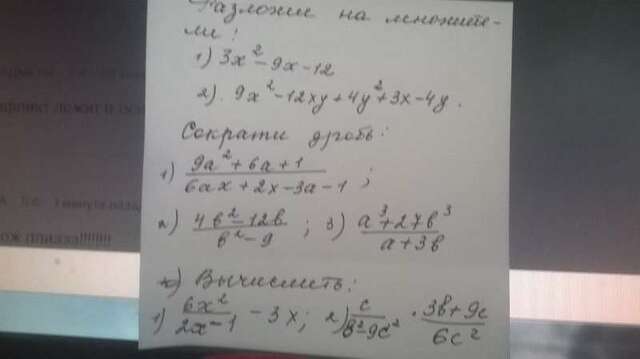 Разложи на множите-
ли!
1) 3x² - 9x - 12
2). 9x² - 12xy + 4y² + 3x - 4y.
Сократи дробь:
1) (9a² + 6a + 1)/(6ax + 2x - 3a - 1);
2) (4b² - 12b)/(b² - 9); 3) (a³ + 27b³)/(a + 3b)
Вычислить:
1) 6x²/(2x - 1) - 3x; 2) c/(b² - 9c²) · (3b + 9c)/(6c²)